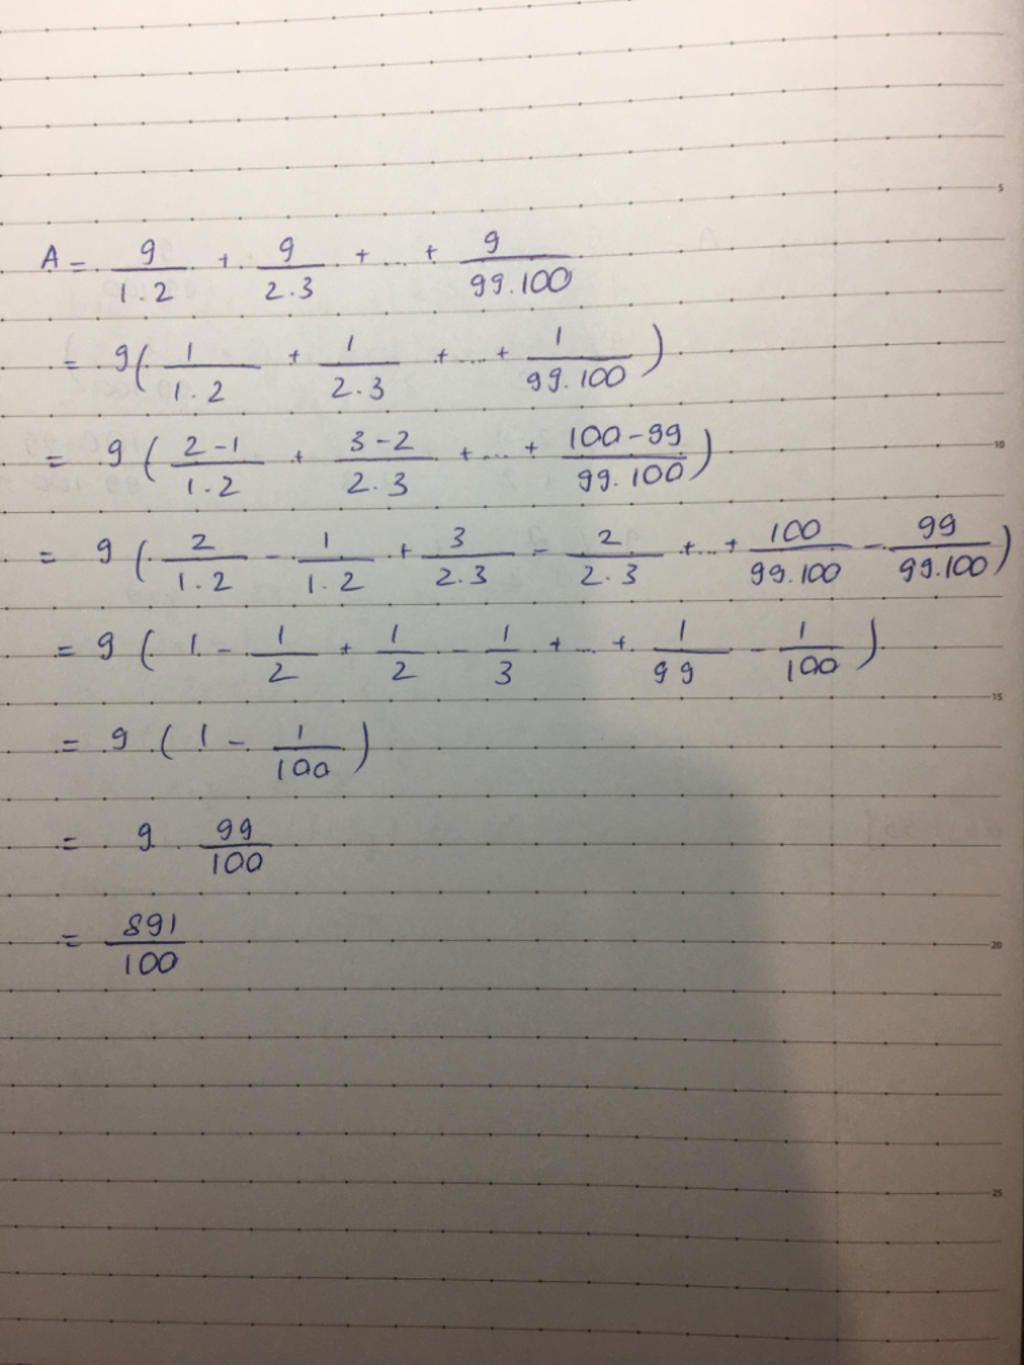 A = 9/1.2 + 9/2.3 + ... + 9/99.100
= 9( 1/1.2 + 1/2.3 + .... + 1/99.100 )
= 9 ( 2-1/1.2 + 3-2/2.3 + .... + 100-99/99.100 )
= 9 ( 2/1.2 - 1/1.2 + 3/2.3 - 2/2.3 + ... + 100/99.100 - 99/99.100 )
= 9 ( 1 - 1/2 + 1/2 - 1/3 + ... + 1/99 - 1/100 )
= 9 . ( 1 - 1/100 )
= 9 . 99/100
= 891/100
5
10
15
20
25